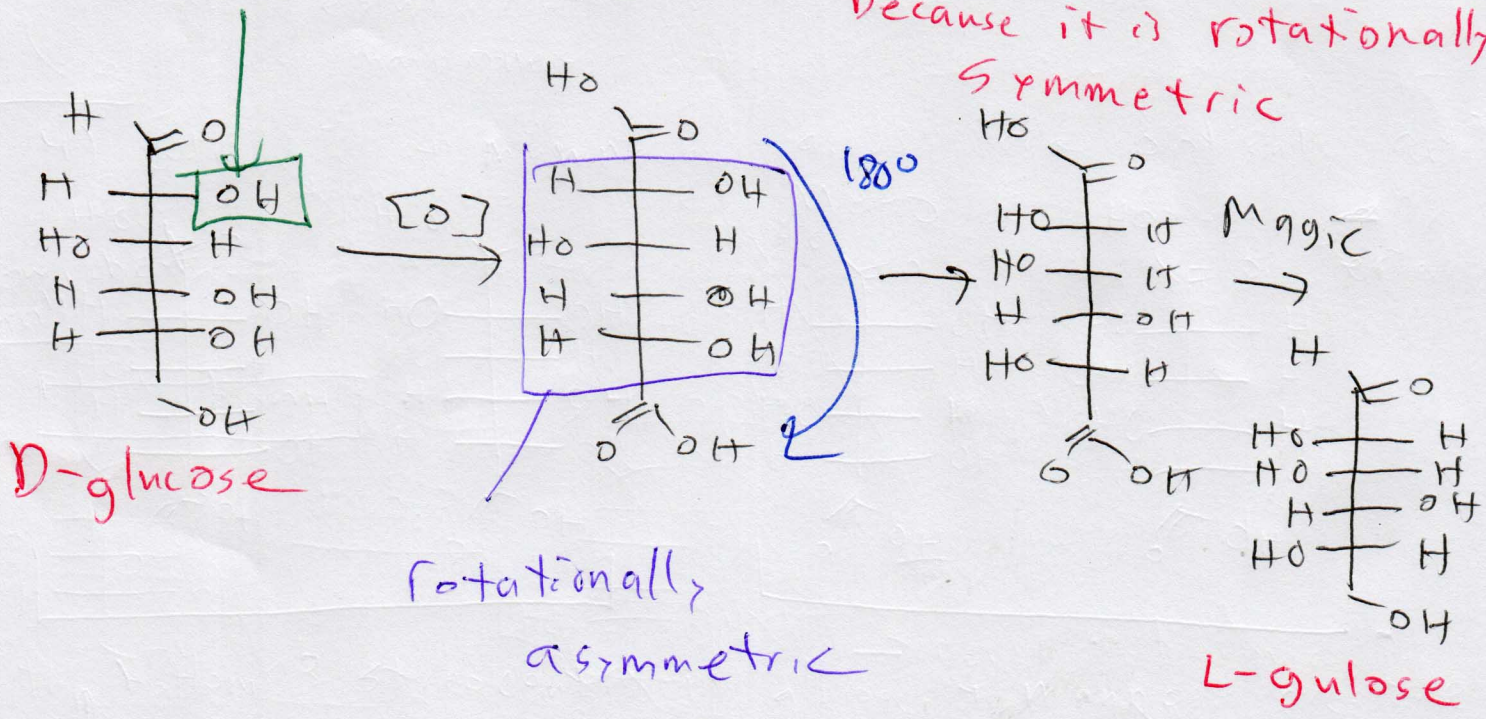 because it is rotationally
symmetric
H
O
H OH
HO H
H OH
H OH
OH
D-glucose
[O]
HO
O
H OH
HO H
H OH
H OH
O OH
rotationally
asymmetric
180°
HO
O
HO H
HO H
H OH
HO H
O OH
Magic
H
O
HO H
HO H
H OH
HO H
OH
L-gulose